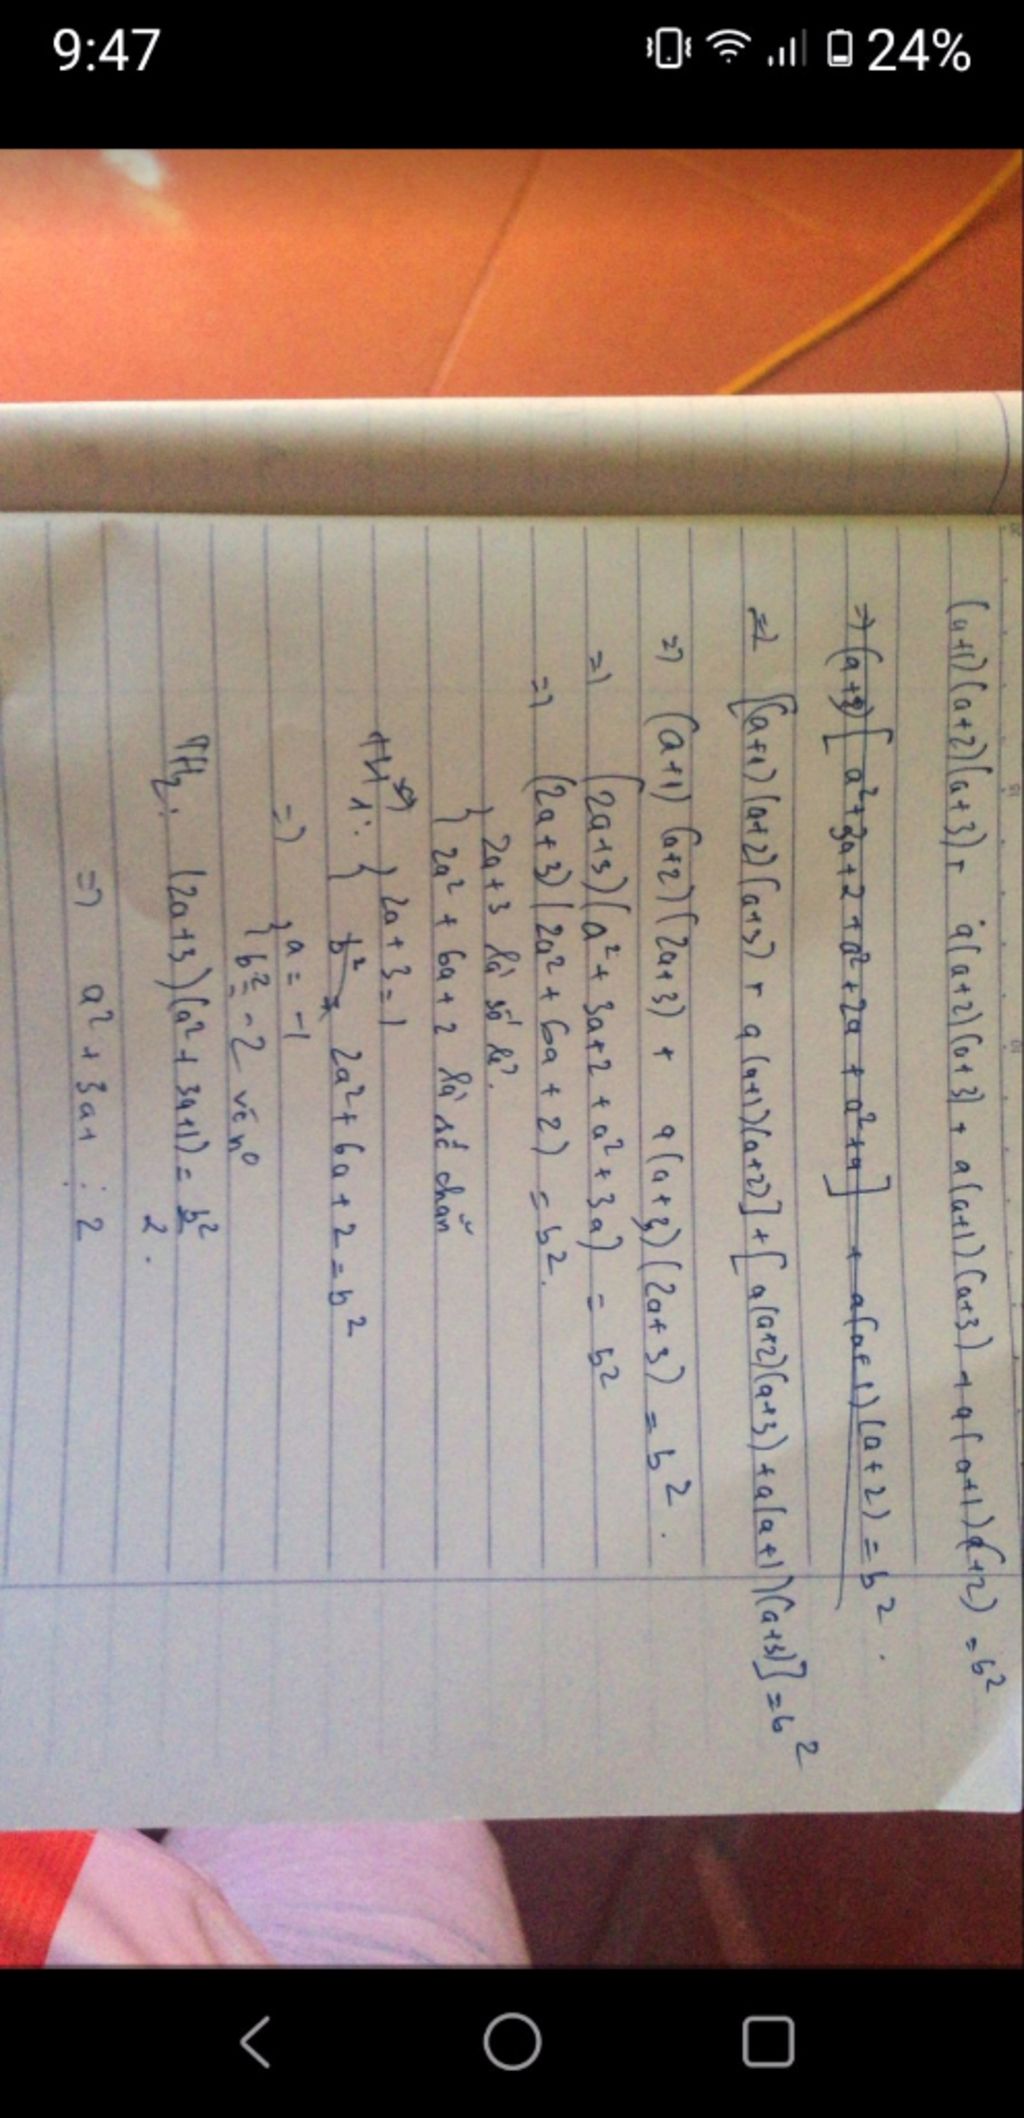 9:47
24%
(a+1)(a+2)(a+3) + a(a+2)(a+3) + a(a+1)(a+3) + a(a+1)(+2) = b²
=> (a+3)[a²+3a+2+a²+2a+a²+a] + a(a+1)(a+2) = b².
=> [(a+1)(a+2)(a+3) + a(a+1)(a+2)] + [a(a+2)(a+3) + a(a+1)(a+3)] = b²
=> (a+1)(a+2)(2a+3) + a(a+3)(2a+3) = b².
=> (2a+3)(a²+3a+2+a²+3a) = b²
=> (2a+3)(2a²+6a+2) = b².
2a+3 là số lẻ.
2a²+6a+2 là số chẵn
TH1: 2a+3=1
2a²+6a+2=b²
=> a = -1
b² = -2 vô no
TH2: (2a+3)(a²+3a+1) = b²/2.
=> a²+3a+ ⋮ 2